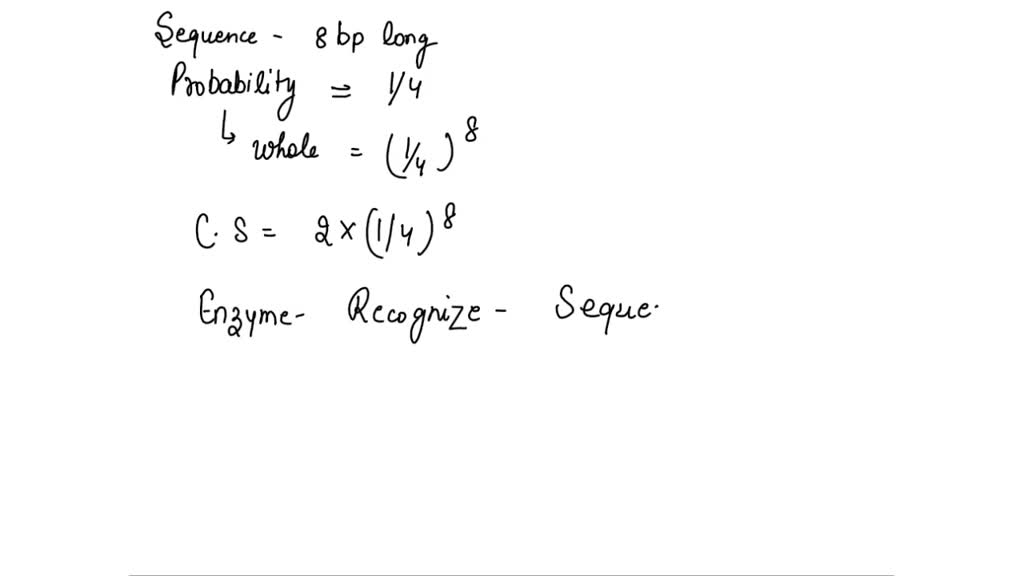 Sequence - 8 bp long
Probability = 1/4
↳ whole = (1/4)^8
C.S = 2 x (1/4)^8
Enzyme - Recognize - Seque.